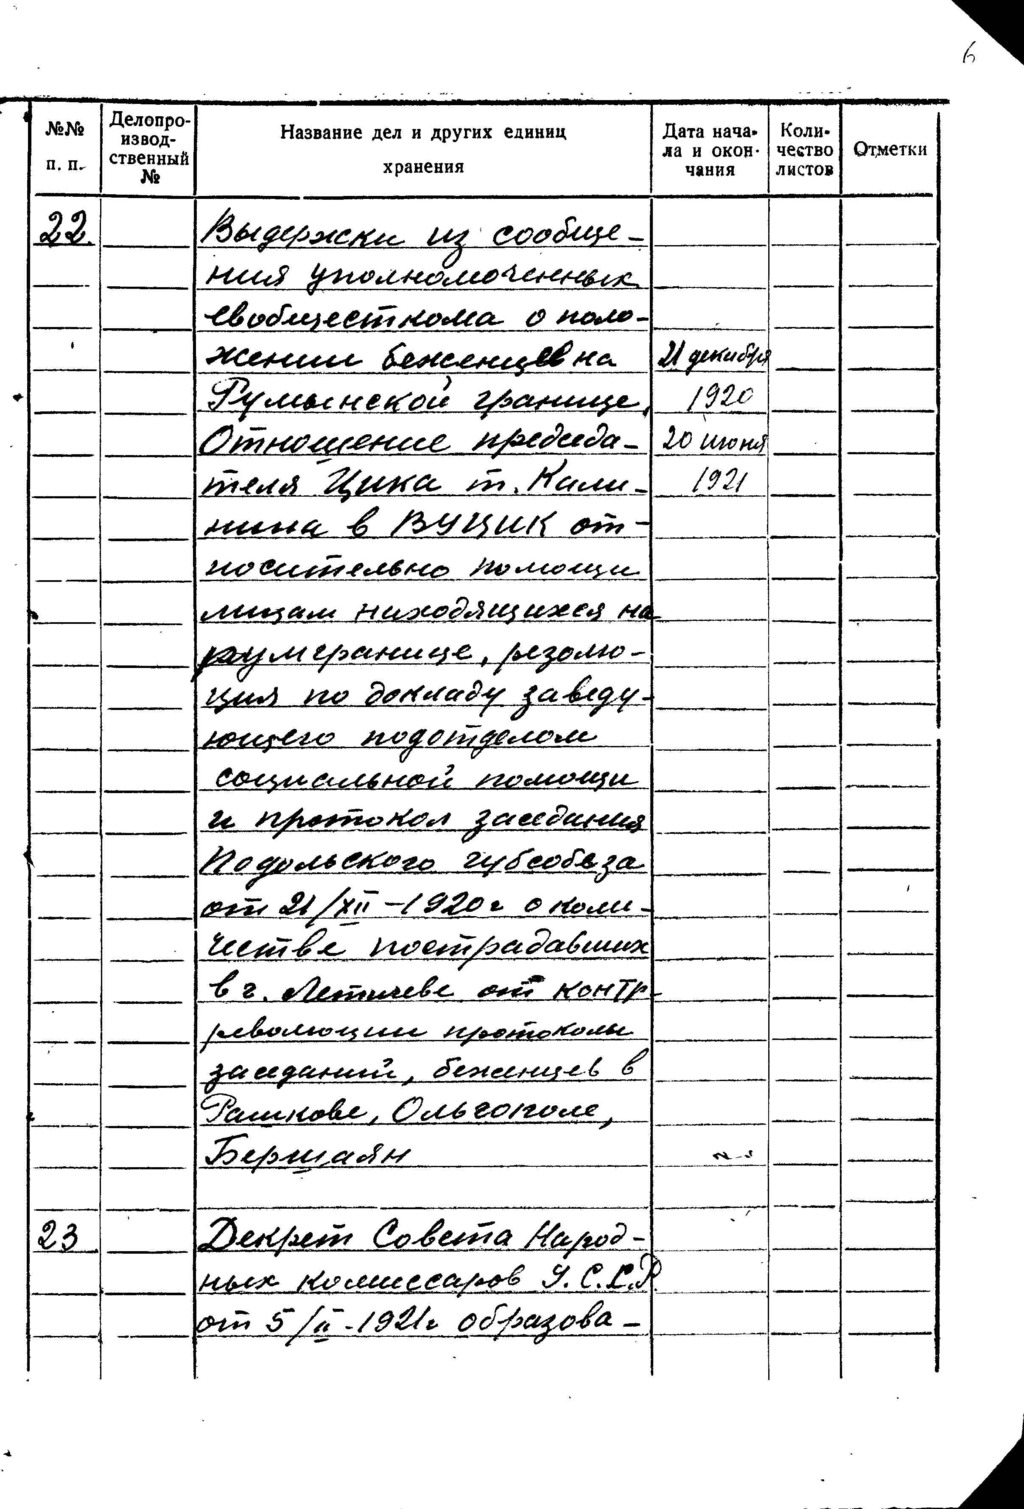 6
№№ п. п.
Делопро-
извод-
ственный
№
Название дел и других единиц
хранения
Дата нача-
ла и окон-
чания
Коли-
чество
листов
Отметки
22. Выдержки из сообще-
ния уполномоченных
Евобщесткома о поло-
жении беженцев на 21 декабря
Румынской границе, 1920
Отношение председа- 20 июня
теля Цика т. Кали- 1921
нина в ВУЦИК от-
носительно помощи
лицам находящихся на
румгранице, резолю-
ция по докладу заведу-
ющего подотделом
социальной помощи
и протокол заседания
Подольского губсобеза
от 21/XII-1920г о коли-
честве пострадавших
в г. Летичеве от контр
революции протоколы
заседаний, беженцев в
Рашкове, Ольгополе,
Бершадян
23 Декрет Совета Народ-
ных комиссаров У.С.С.Р.
от 5/II-1921г образова-